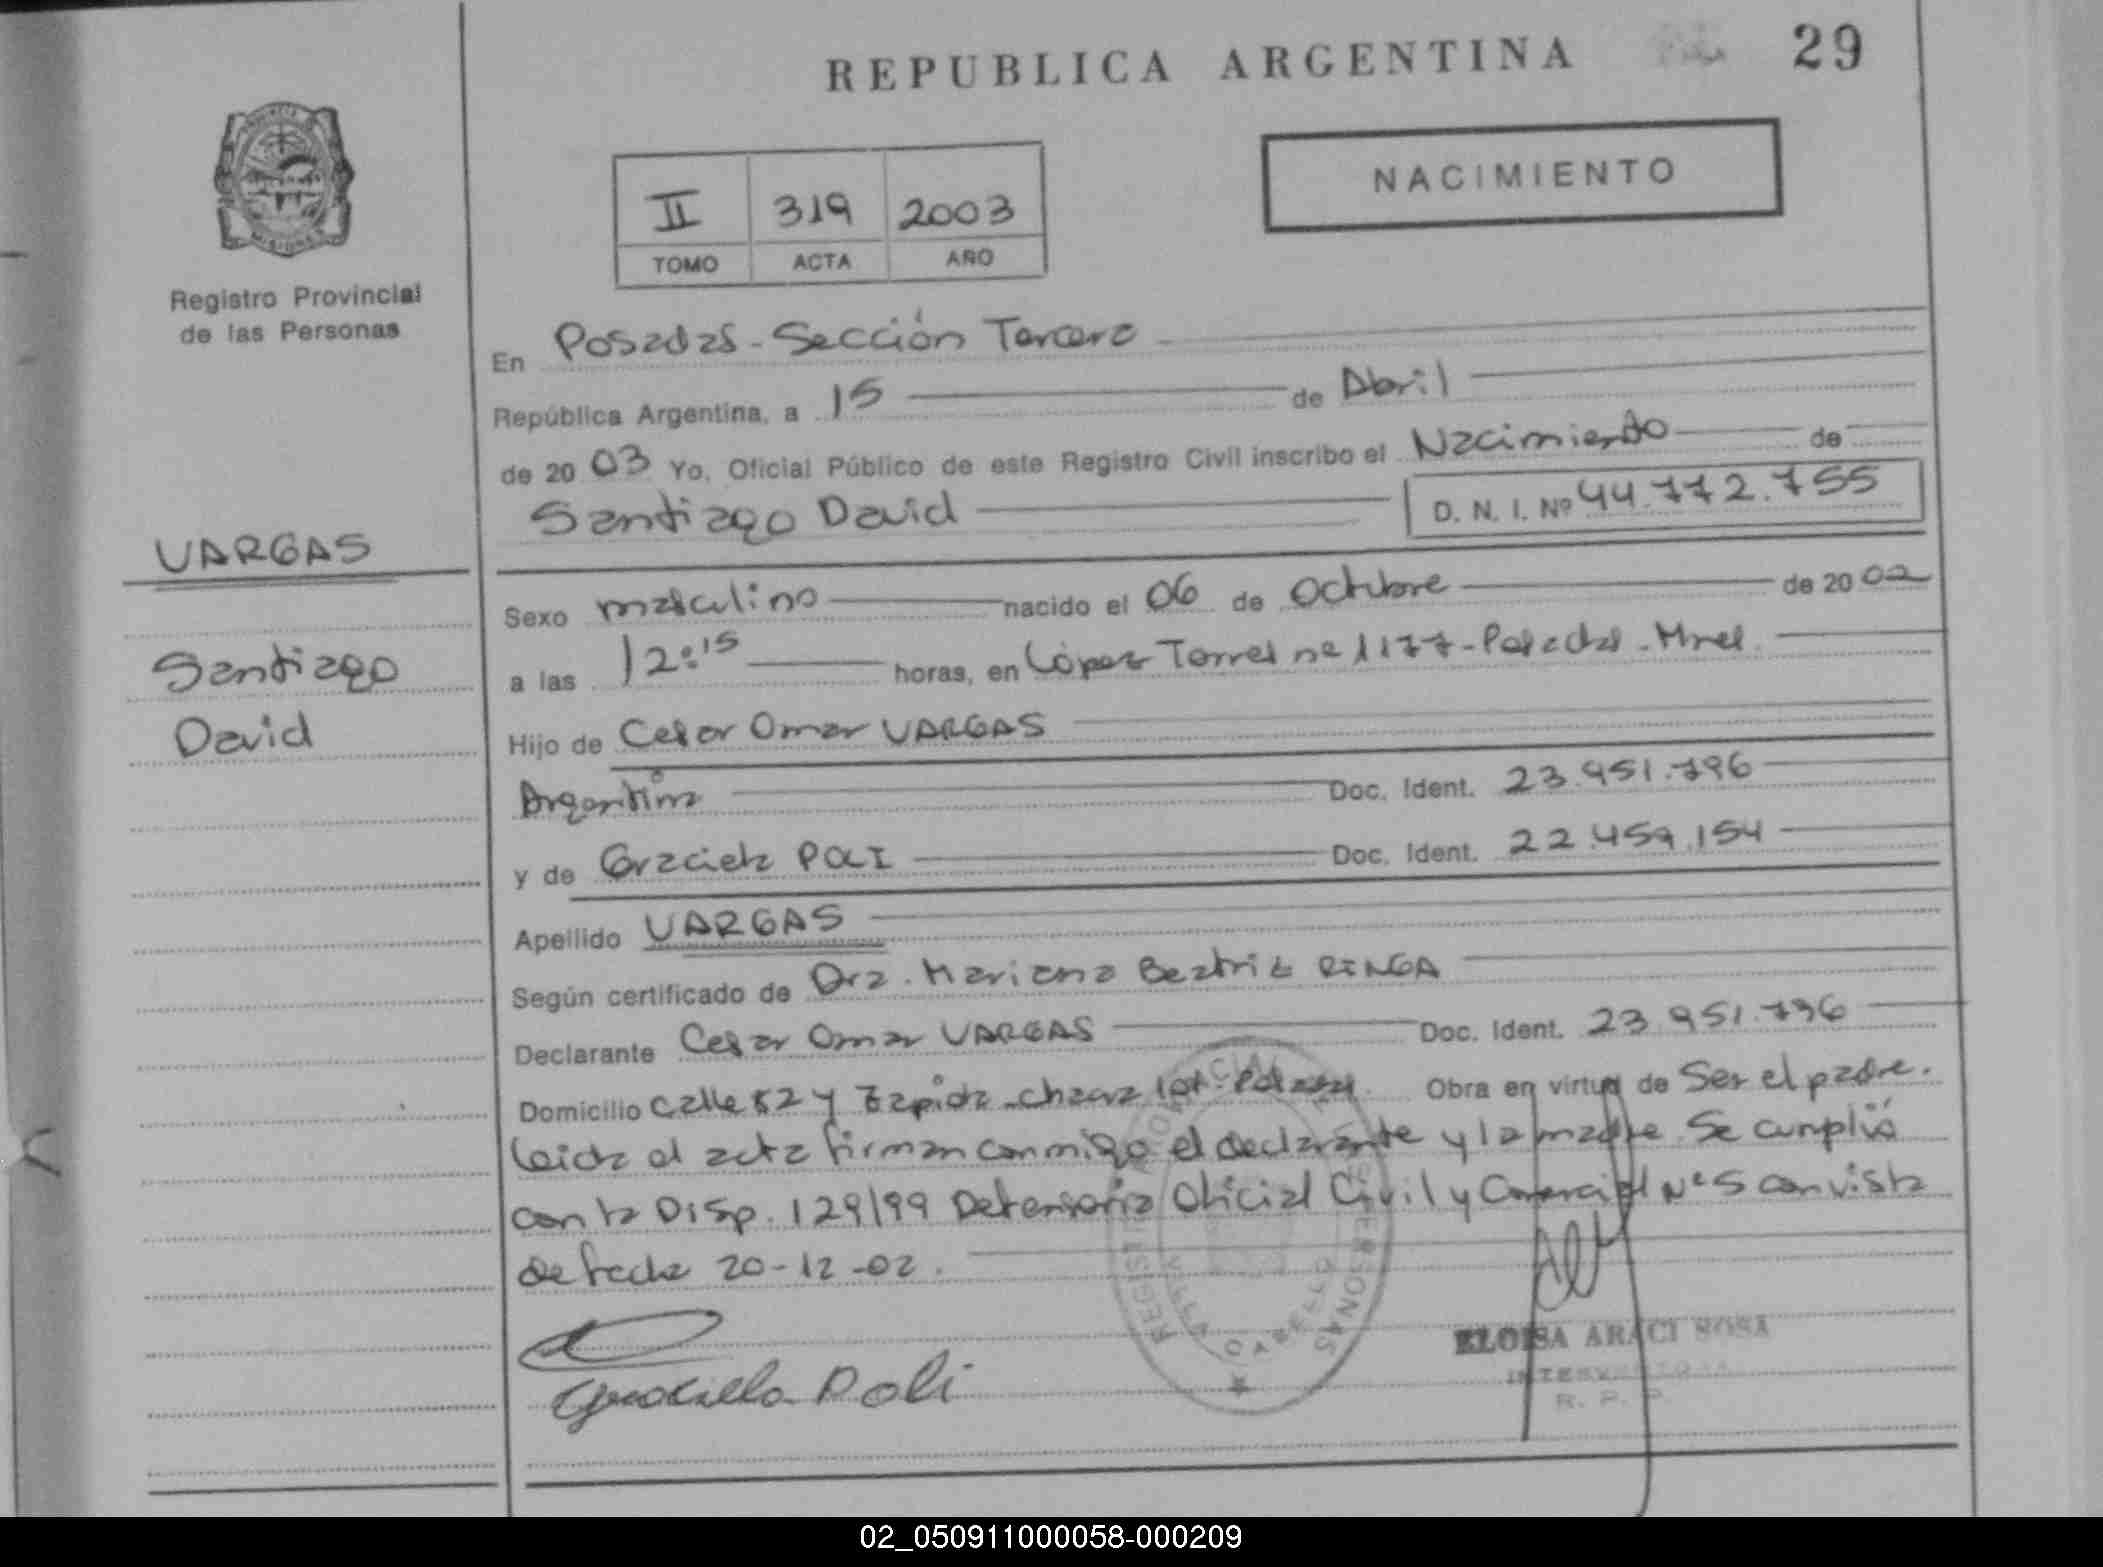 REPUBLICA ARGENTINA
29
NACIMIENTO
II 319 2003
TOMO ACTA AÑO
Registro Provincial
de las Personas
VARGAS
Santiago
David
En Posadas - Sección Tercera
República Argentina, a 15 de Abril
de 2003 Yo, Oficial Público de este Registro Civil inscribo el Nacimiento de
Santiago David D. N. I. Nº 44.772.755
Sexo masculino nacido el 06 de Octubre de 2002
a las 12:15 horas, en López Torres nº 1177 - Posadas - Mnes.
Hijo de Cesar Omar VARGAS
Argentina Doc. Ident. 23.951.796
y de Graciela POLI Doc. Ident. 22.459.154
Apellido VARGAS
Según certificado de Dra. Mariana Beatriz RINGA
Declarante Cesar Omar VARGAS Doc. Ident. 23.951.796
Domicilio calle 52 y Zapiola - chacra Posadas. Obra en virtud de Ser el padre.
Leida el acta firman conmigo el declarante y la madre. Se cumplió
con la Disp. 129/99 Defensoria Oficial Civil y Comercial Nº 5 con vista
de fecha 20-12-02.
Graciela Poli
ELOISA ARACI SOSA
R. P. P.
02_050911000058-000209